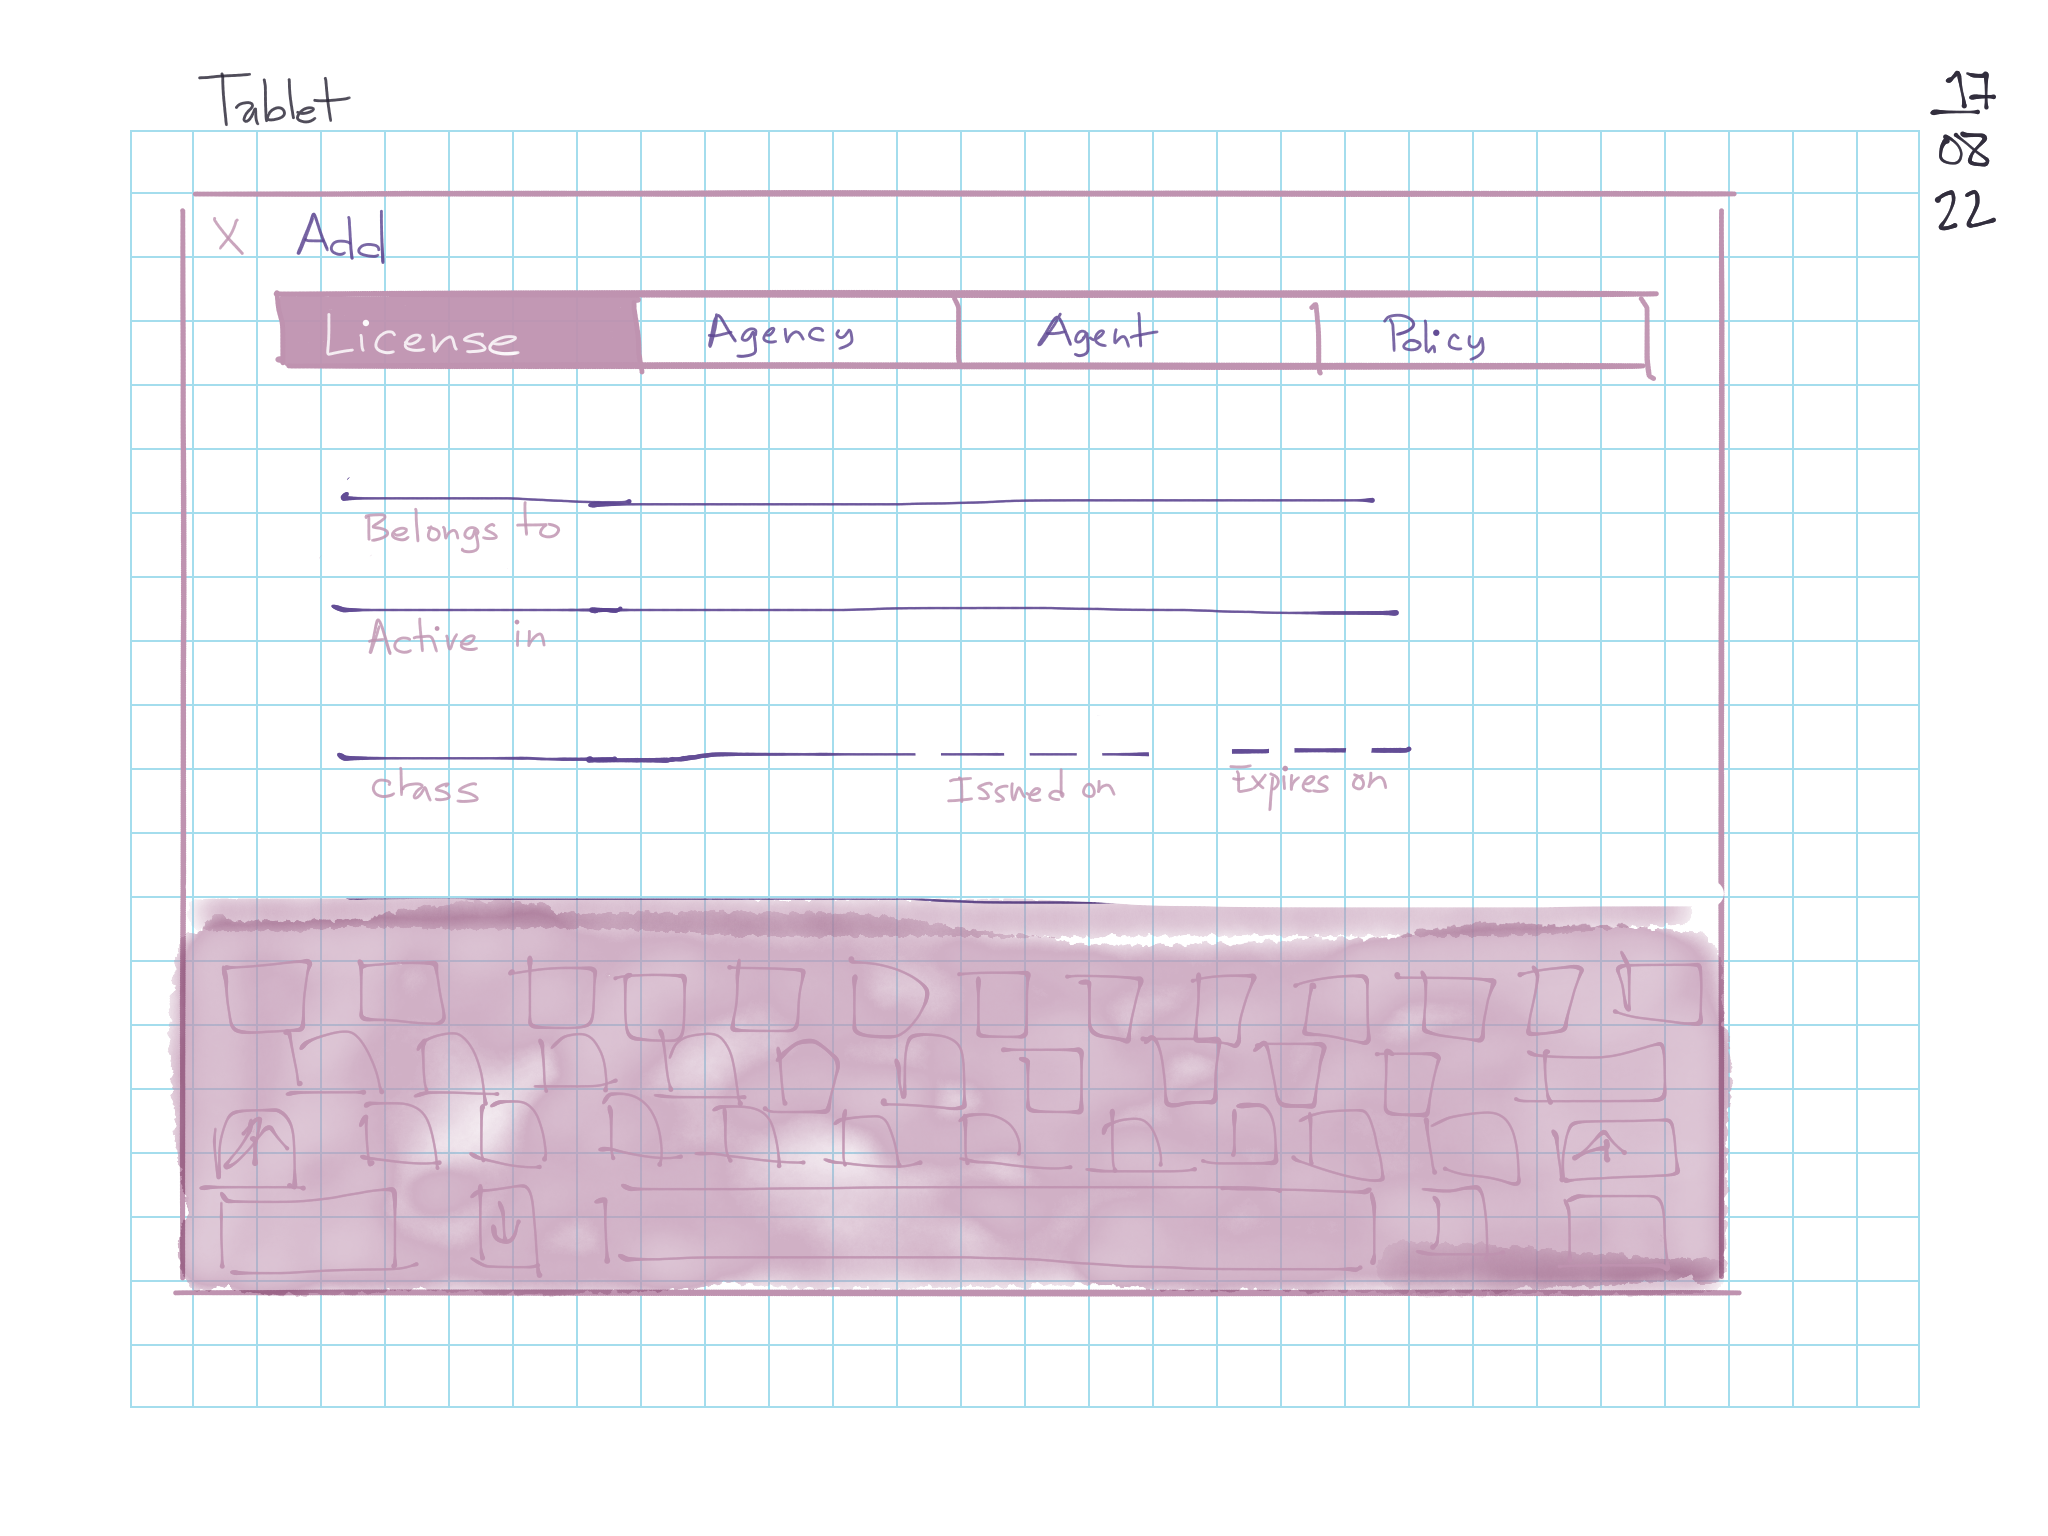 Tablet
17
08
22
X Add
License Agency Agent Policy
Belongs to
Active in
Class Issued on Expires on